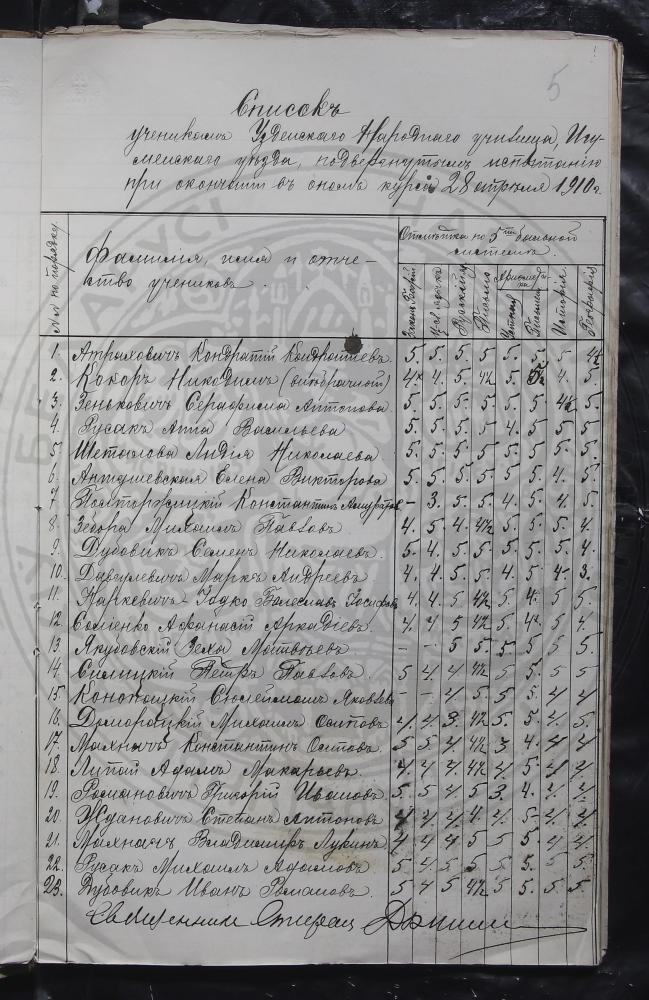 5
Списокъ
ученикамъ Узденскаго Народнаго училища, Игу-
менскаго уѣзда, подвергнутымъ испытанію
при окончаніи въ ономъ курса 28 апрѣля 1910 г.
№№ по порядку.
Фамилія, имя и отче-
ство учениковъ.
Отмѣтка по 5ти бальной
системѣ.
Законъ Божій
Русскій
Письмо
Ариѳмети-
ка
Устная
Письмен.
Исторія
Географія
1. Атраховичъ Кондратій Кондратьевъ. 5. 5. 5. 5 5. 5. 5 4½
2. Кокоръ Никодимъ 4. 4. 5. 4½ 5. 5½ 4. 5.
3. Зеньковичъ Серафима Антонова 5 5. 5. 5. 5. 5 4½ 5.
4. Русакъ Анна Васильева 5. 5. 5. 5 4. 5 5 5.
5. Лидія Николаева 5. 5. 5. 5 5. 5. 5. 5.
6. Елена Викторова 5. 5. 5. 5. 5. 5. 4. 5.
7. Константинъ - 3. 5. 5. 4. 5. 4. 5
8. Зедора Михаилъ Павловъ 4. 5. 4. 4½ 5. 5. 5. 4.
9. Дубовикъ Семенъ Николаевъ. 5. 4. 5. 5 5. 5. 5. 4.
10. Давидевичъ Маркъ Андреевъ. 4. 4. 5. 5. 4. 5. 4. 3.
11. Маркевичъ-Годко Болеславъ Іосифовъ 4. 4. 5. 4½ 5. 4. 5 5.
12. Аѳанасій Аркадіевъ. 4. 4 5 4½ 5. 4. 5. 4.
13. Якубовскій Матвѣевъ. - - 5 5. 5. 5 5 5.
14. Силицкій Петръ Павловъ 5 4. 4 4½ 5 5. 5 5
15. Конопацкій Сюлейманъ Яковлевъ - - 4. 5. 5. 5. 4. 4
16. Домороцкій Михаилъ Осиповъ 4. 4. 3. 4½ 5. 5. 4. 5.
17. Махначъ Константинъ Осиповъ. 5 5 4 4½ 3. 4. 4 4
18. Липай Адамъ Макарьевъ. 4 4. 4. 4½ 4 5. 4 4
19. Романовичъ Григорій Ивановъ. 5 5 4 5 3. 4. 4. 4.
20. Ждановичъ Степанъ Антоновъ 4 4 4 4. 4 5 4 4
21. Махначъ Владимиръ Лукинъ 4 4 4 5 5 5. 4 4
22. Русакъ Михаилъ Адамовъ 5 4 5 5 5 5. 5 5.
23. Дубовикъ Иванъ Романовъ. 5 4 5 4½ 5 5. 5 5
Священникъ